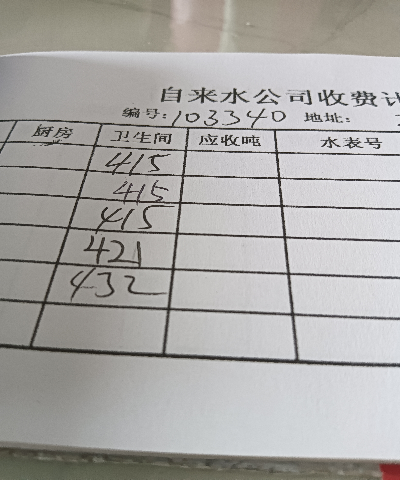 自来水公司收费
编号:103340 地址:
厨房 卫生间 应收吨 水表号
415
415
415
421
432